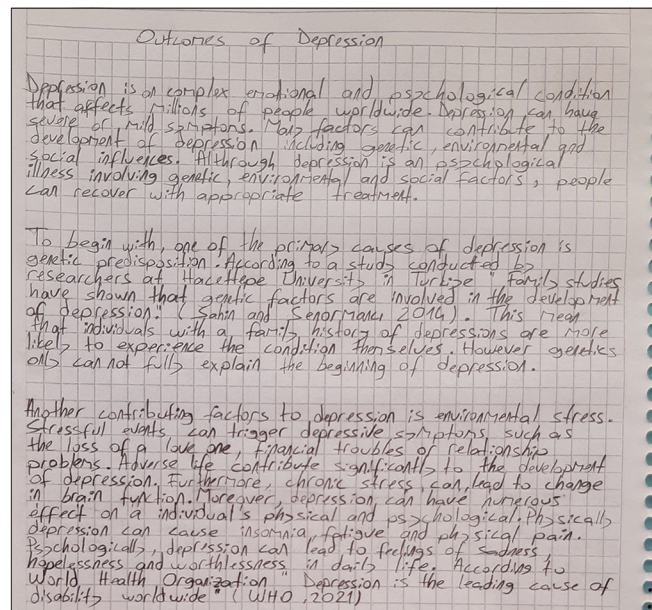 Outcomes of Depression
Depression is an complex emotional and psychological condition
that affects millions of people worldwide. Depression can have
severe or mild symptoms. Many factors can contribute to the
development of depression including genetic, environmental and
social influences. Althrough depression is an psychological
illness involving genetic, environmental and social factors, people
can recover with appropriate treatment.
To begin with, one of the primary causes of depression is
genetic predisposition. According to a study conducted by
researchers at Hacettepe University in Turkiye "family studies
have shown that genetic factors are involved in the development
of depression." (Sahin and Senormancı 2014). This mean
that individuals with a family history of depressions are more
likely to experience the condition themselves. However genetics
only can not fully explain the beginning of depression.
Another contributing factors to depression is environmental stress.
Stressful events can trigger depressive symptoms, such as
the loss of a love one, financial troubles or relationship
problems. Adverse life contribute significantly to the development
of depression. Furthermore, chronic stress can lead to change
in brain function. Moreover, depression can have numerous
effect on a individual's physical and psychological. Physically
depression can cause insomnia, fatigue and physical pain.
Psychologically, depression can lead to feelings of sadness,
hopelessness and worthlessness in daily life. According to
World Health Organization "Depression is the leading cause of
disability worldwide" (WHO, 2021)